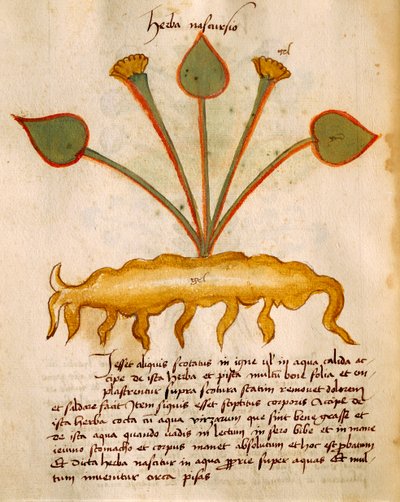 herba nascursio
Si esset aliquis scotatus in igne ul' in aqua calida ac
cipe de ista herba et pista multu bene folia et en
plastrentur supra scotura statim removet dolorem
et saldare facit Item siquis esset stipticus corporis Accipe de
ista herba cocta cu aqua que sint bene grasse et
de ista aqua quando vadis in lectum in sero bibe et in mane
ieiuno stomacho et corpus manet absolutum et hoc est probatum
Et dicta herba nascitur in aqua super aquas Et mul
tum invenitur circa pisas